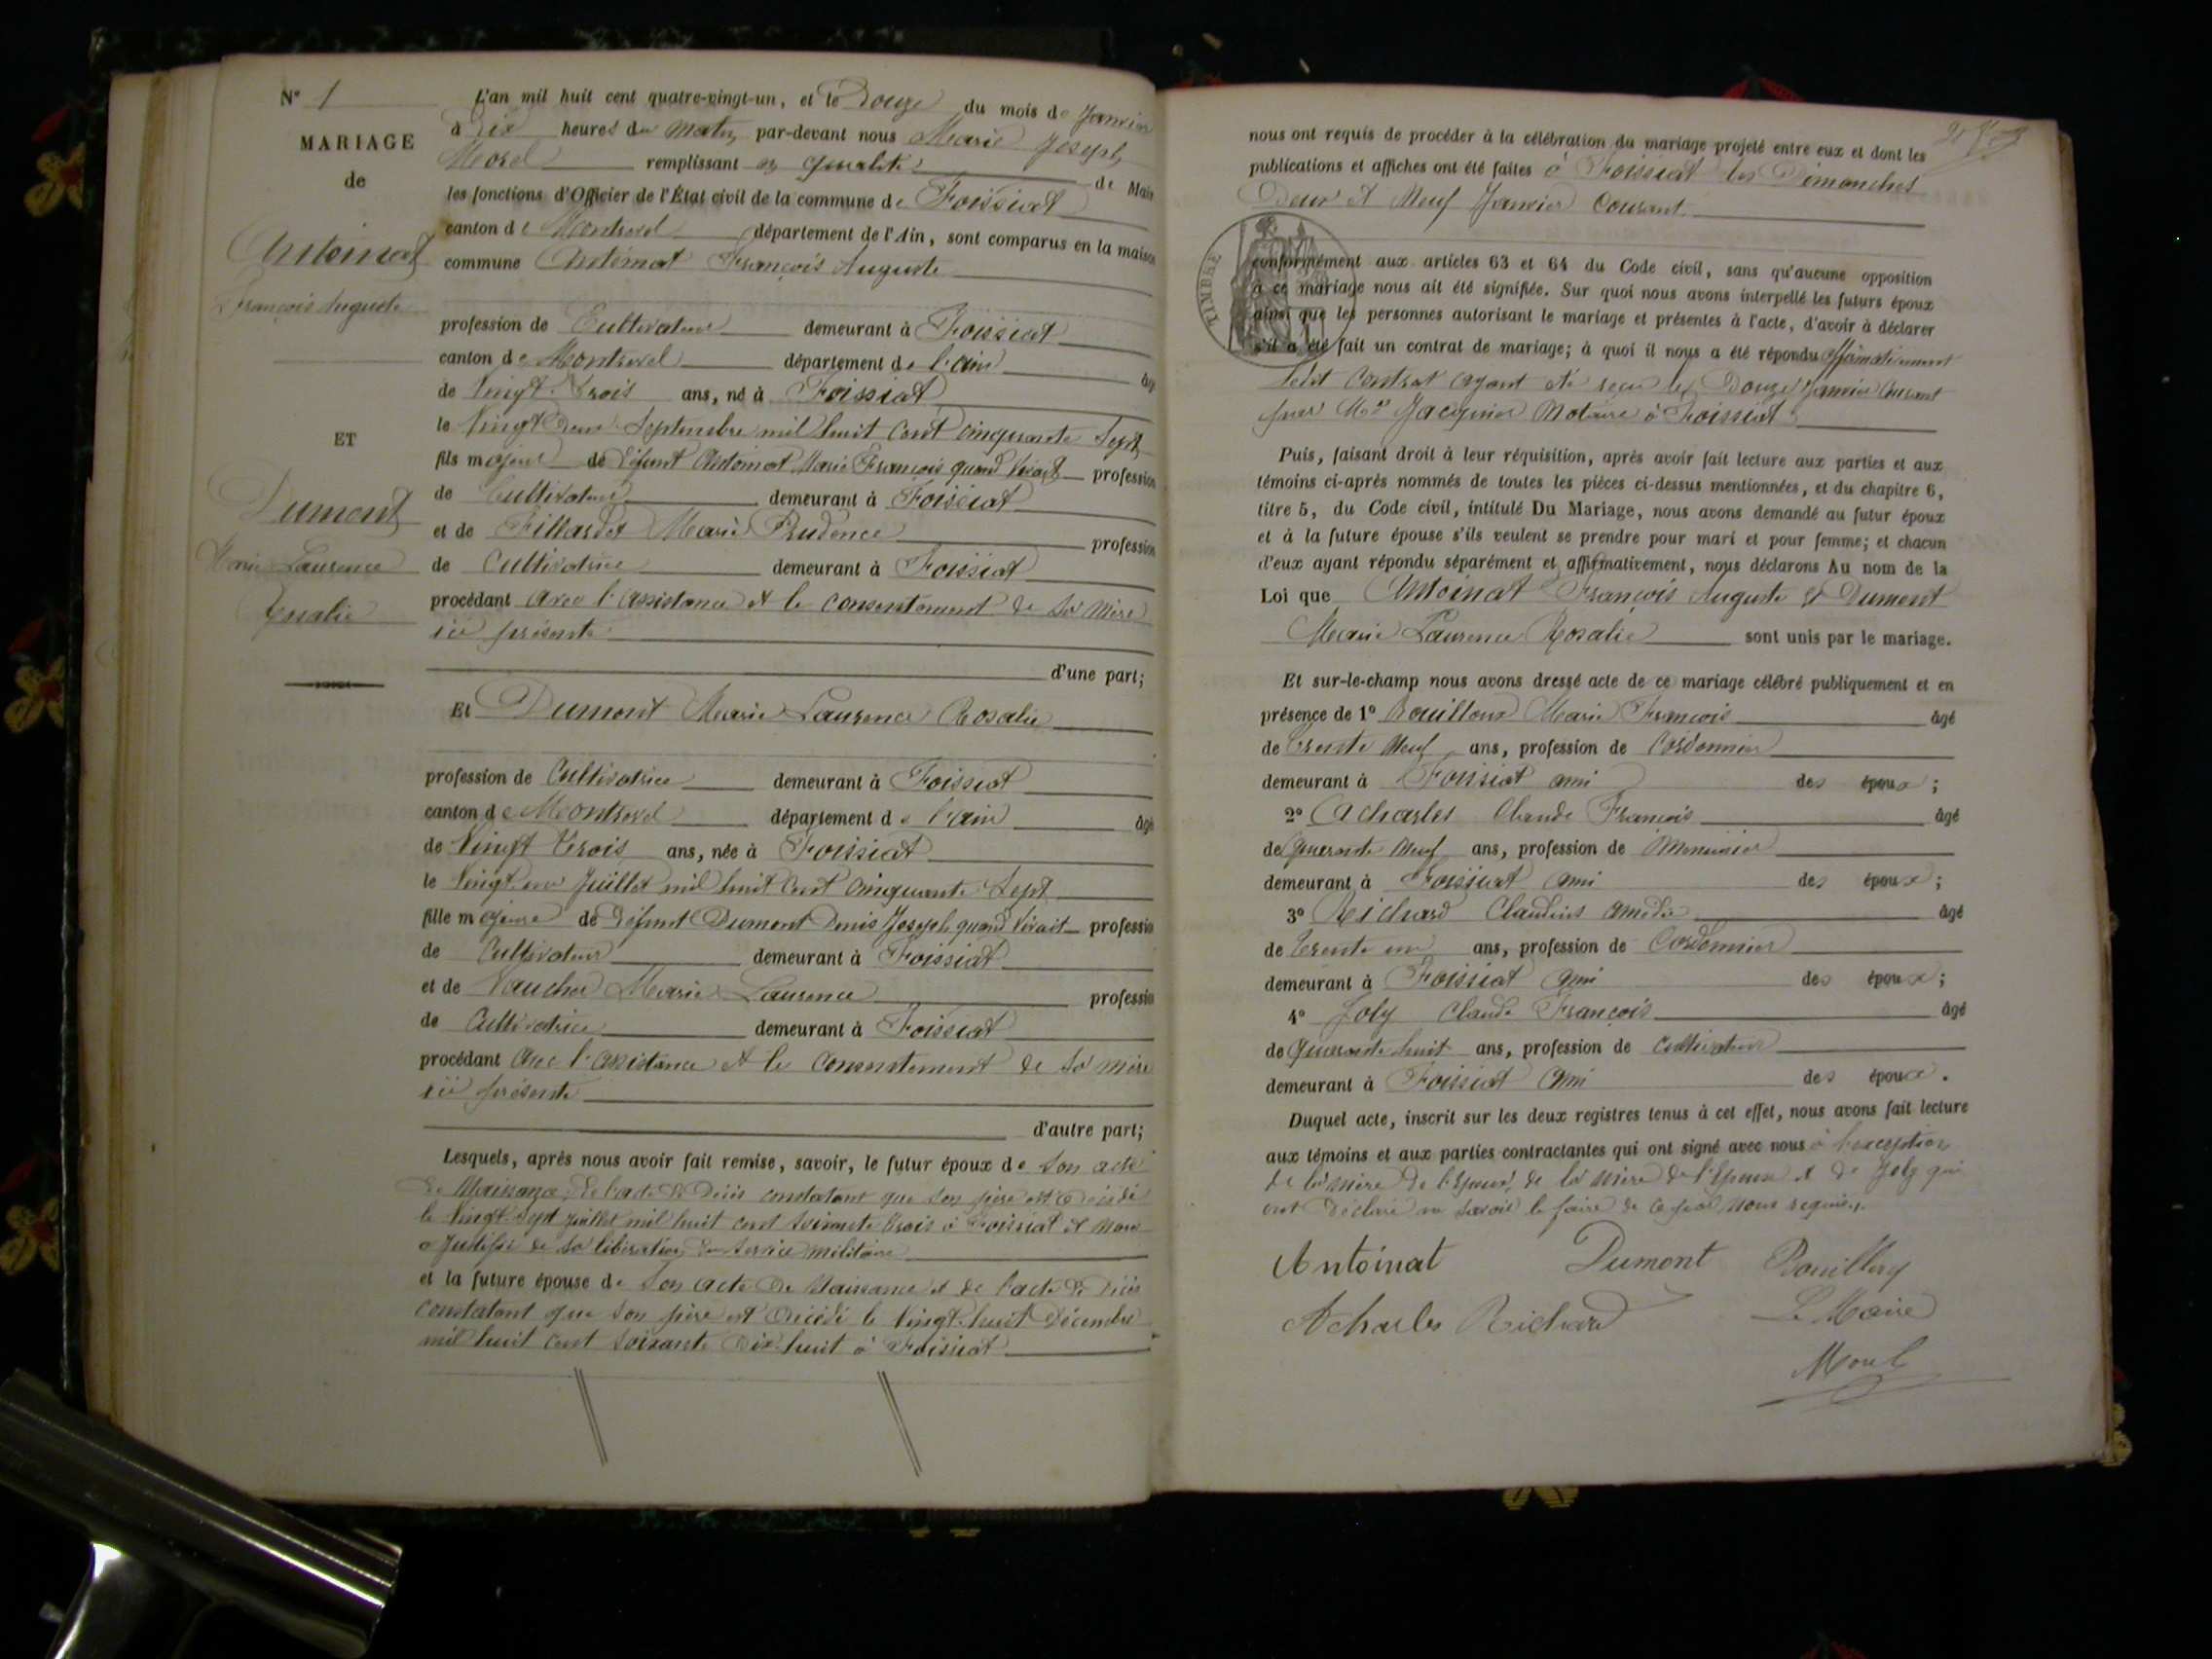 N° 1
MARIAGE
de
Antoinat
François Auguste
ET
Dumont
Marie Laurence
Rosalie
L'an mil huit cent quatre-vingt-un, et le Douze du mois de Janvier
à Dix heures du matin par-devant nous Marie Joseph
Morel remplissant en qualité de Maire
les fonctions d'Officier de l'État civil de la commune de Foissiat
canton de Montrevel département de l'Ain, sont comparus en la maison
commune Antoinat François Auguste
profession de Cultivateur demeurant à Foissiat
canton de Montrevel département de l'ain âgé
de Vingt Trois ans, né à Foissiat
le Vingt Deux Septembre mil huit cent cinquante Sept
fils majeur de Défunt Antoinat Marie François quand Vivait profession
de Cultivateur demeurant à Foissiat
et de Fillardet Marie Prudence profession
de Cultivatrice demeurant à Foissiat
procédant avec l'assistance et le consentement de sa mère
ici présente
d'une part;
Et Dumont Marie Laurence Rosalie
profession de Cultivatrice demeurant à Foissiat
canton de Montrevel département de l'ain âgé
de Vingt Trois ans, née à Foissiat
le Vingt un Juillet mil huit cent cinquante Sept
fille majeure de Défunt Dumont Denis Joseph quand Vivait profession
de Cultivateur demeurant à Foissiat
et de Vaucher Marie Laurence profession
de Cultivatrice demeurant à Foissiat
procédant avec l'assistance et le consentement de sa mère
ici présente
d'autre part;
Lesquels, après nous avoir fait remise, savoir, le futur époux de son acte
de Naissance, de l'acte de Décès constatant que son père est Décédé
le Vingt Sept Juillet mil huit cent soixante trois à Foissiat et nous
a Justifié de sa libération du service militaire
et la future épouse de son acte de Naissance et de l'acte de Décès
constatant que son père est Décédé le Vingt huit Décembre
mil huit cent soixante Dix huit à Foissiat
nous ont requis de procéder à la célébration du mariage projeté entre eux et dont les
publications et affiches ont été faites à Foissiat les Dimanches
Deux et Neuf Janvier Courant
TIMBRE
conformément aux articles 63 et 64 du Code civil, sans qu'aucune opposition
à ce mariage nous ait été signifiée. Sur quoi nous avons interpellé les futurs époux
ainsi que les personnes autorisant le mariage et présentes à l'acte, d'avoir à déclarer
s'il a été fait un contrat de mariage; à quoi il nous a été répondu affirmativement
ledit contrat ayant été reçu le Douze Janvier Courant
par Me Jacquier Notaire à Foissiat
Puis, faisant droit à leur réquisition, après avoir fait lecture aux parties et aux
témoins ci-après nommés de toutes les pièces ci-dessus mentionnées, et du chapitre 6,
titre 5, du Code civil, intitulé Du Mariage, nous avons demandé au futur époux
et à la future épouse s'ils veulent se prendre pour mari et pour femme; et chacun
d'eux ayant répondu séparément et affirmativement, nous déclarons Au nom de la
Loi que Antoinat François Auguste et Dumont
Marie Laurence Rosalie sont unis par le mariage.
Et sur-le-champ nous avons dressé acte de ce mariage célébré publiquement et en
présence de 1° Bouilloux Marie François âgé
de Trente Neuf ans, profession de Cordonnier
demeurant à Foissiat ami des époux ;
2° Acharles Claude François âgé
de quarante Neuf ans, profession de Menuisier
demeurant à Foissiat ami des époux ;
3° Richard Claudius amédée âgé
de Trente un ans, profession de Cordonnier
demeurant à Foissiat ami des époux ;
4° Joly Claude François âgé
de quarante huit ans, profession de cultivateur
demeurant à Foissiat ami des époux .
Duquel acte, inscrit sur les deux registres tenus à cet effet, nous avons fait lecture
aux témoins et aux parties contractantes qui ont signé avec nous à l'exception
de la mère de l'Epoux, de la mère de l'Epouse et de Joly qui
ont Déclaré ne savoir le faire de ce par nous requis.
Antoinat Dumont Bouilloux
Acharles Richard Le Maire
Morel